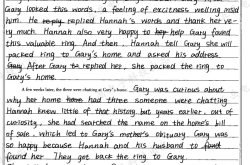 Gary looked this words, a feeling of excitness welling insid
him. He reply replied Hannah's words and thank her ve-
ry much. Hannah also very happy to hep help Gary found
this valuable ring. And then, Hannah tell Gary she will
packed ring to Gary's home and asked his address.
Gary After Gary replied her, she packed the ring to
Gary's home.
A few weeks later, the three were chatting at Gary's house. Gary was curious about
why her home had three someone were chatting
Hannah knew little of that history, but years earlier, out of
curiosity, she had searched the name on the home's bill
of sale, which led to Gary's mother's obituary. Gary was
so happy because Hannah and his husband to found
found her. They got back the ring to Gary.